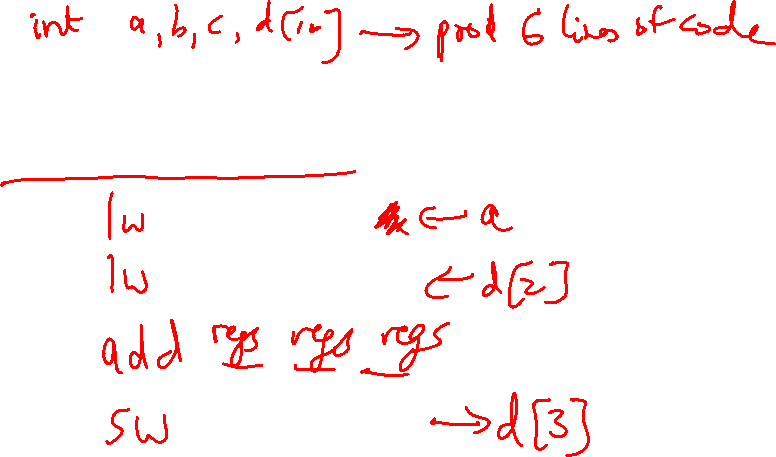 int a, b, c, d[10] → prod 6 lines of code
lw ← a
lw ← d[2]
add regs regs regs
sw → d[3]